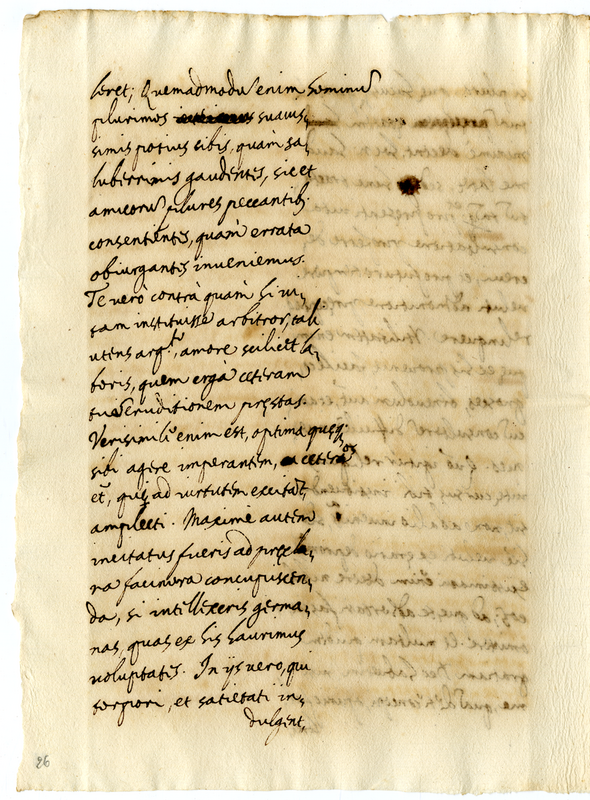 beret; Quemadmodū enim hominū
plurimos suavis,
simis potius cibis, quàm sa,
luberrimis gaudentes, sic et
amicorū plures peccantib.
consentientes, quàm errata
obiurgantes inveniemus.
Te verò contrà quàm hi vi,
tam instituisse arbitror, tali
utens argto, amore scilicet la,
boris, quem ergà ceteram
tuā eruditionem pręstas.
Verisimile enim est, optima quęq.
sibi agere imperantem, ceteros
et, qui ad virtutem excitāt,
amplecti. Maximè autem
incitatus fueris ad pręcla,
ra facinora concupiscen,
da, si intellexeris germa,
nas, quas ex his haurimus
voluptates. In ijs vero, qui
torpori, et satietati in,
dulgent,
26